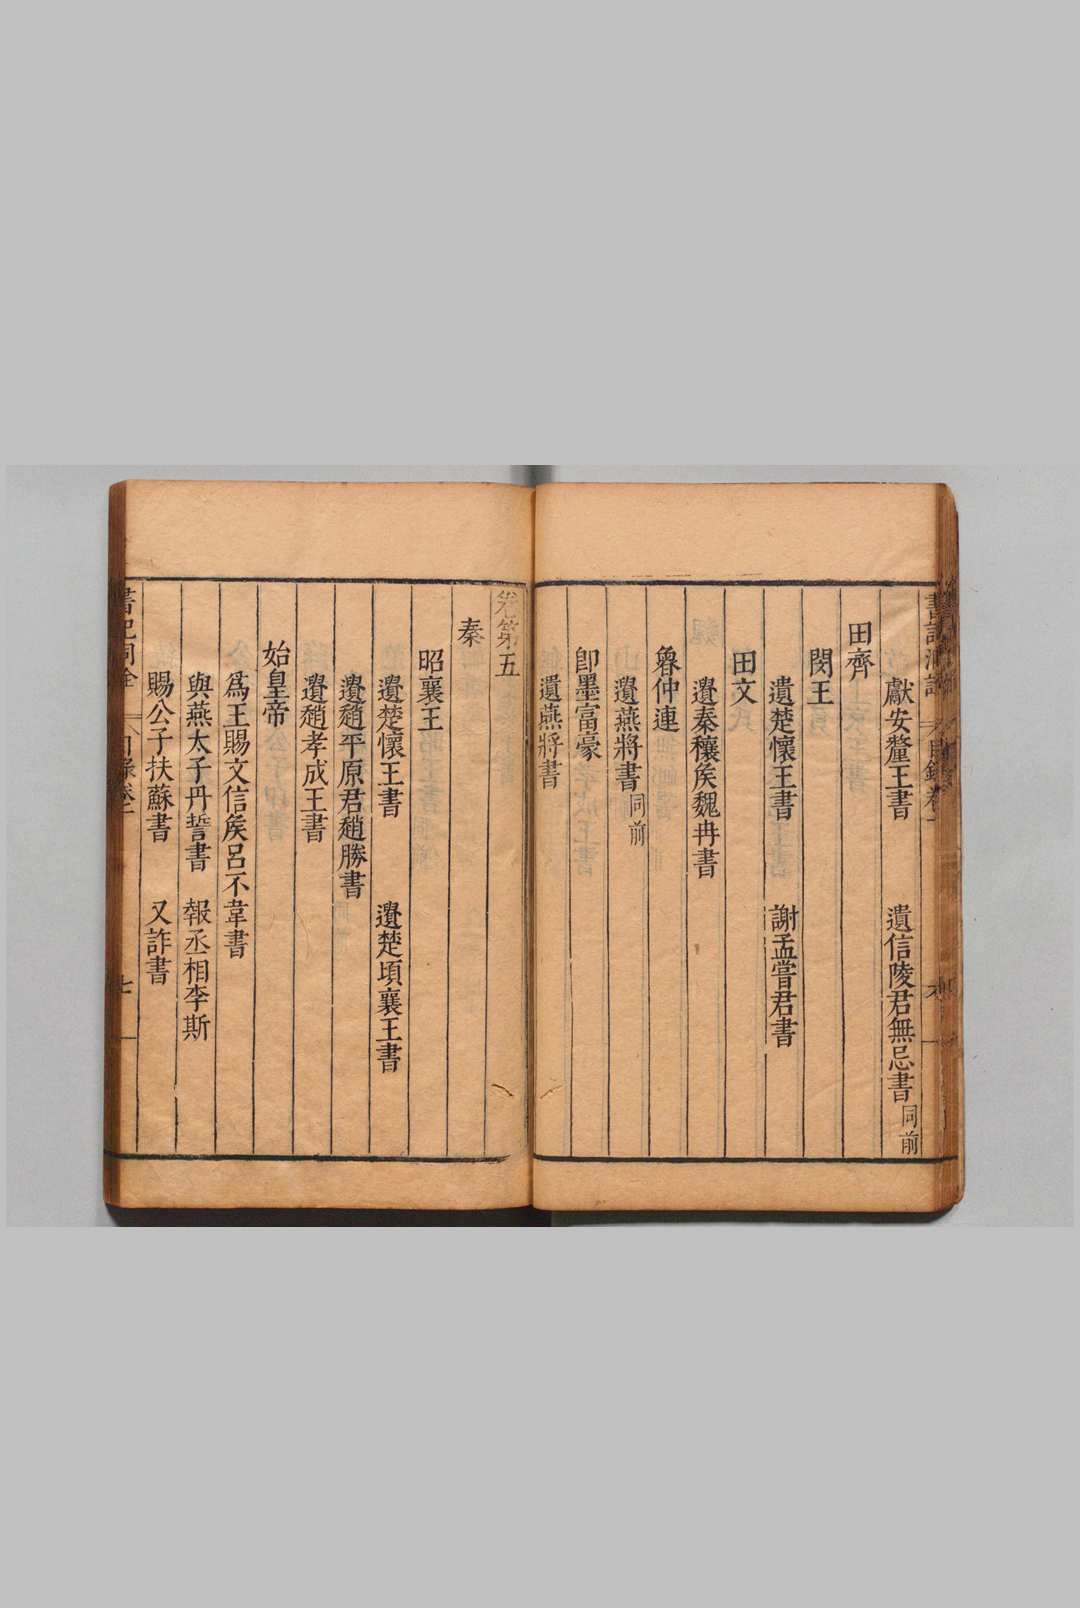 獻安釐王書 遺信陵君無忌書同前
田齊
閔王
遺楚懷王書 謝孟嘗君書
田文
遺秦穰侯魏冉書
魯仲連
遺燕將書同前
卽墨富豪
遺燕將書
卷第五
秦
昭襄王
遺楚懷王書 遺楚頃襄王書
遺趙平原君趙勝書
遺趙孝成王書
始皇帝
爲王賜文信侯呂不韋書
與燕太子丹誓書 報丞相李斯
賜公子扶蘇書 又詐書
書記洞詮 目錄卷一 七